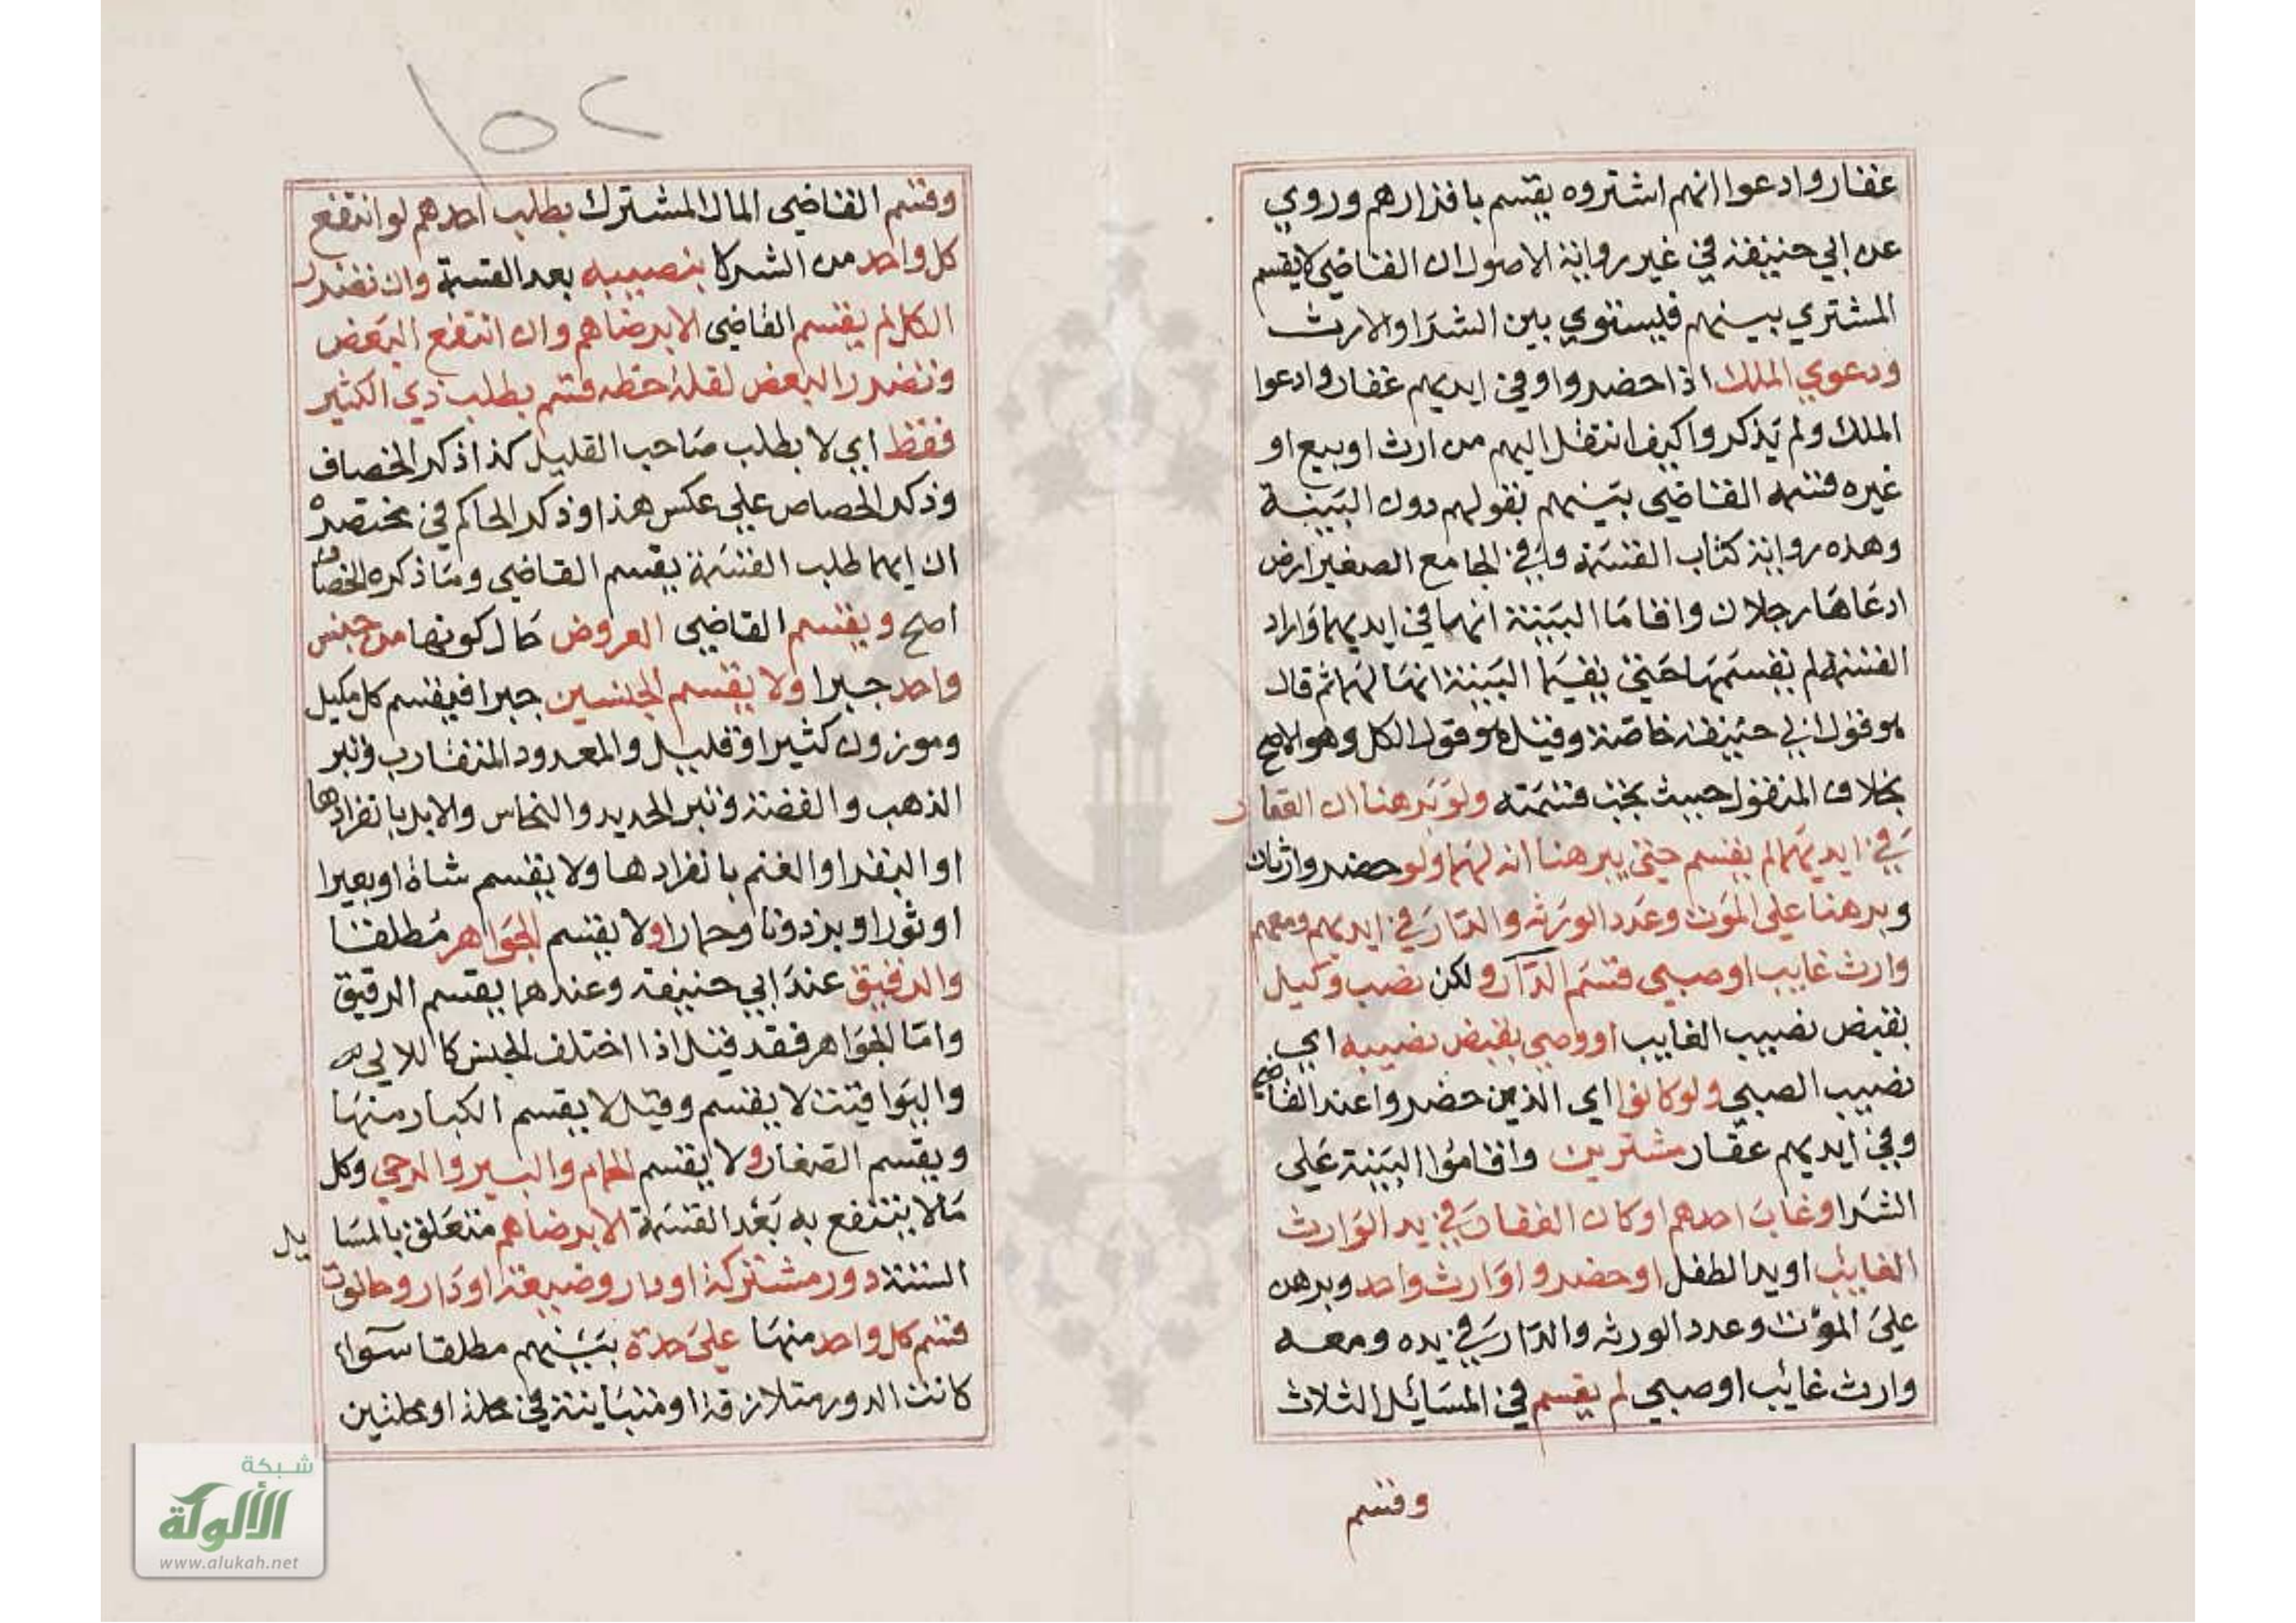 عقار وادعوا انهم اشتروه يقسم باقرارهم وروي
عن ابي حنيفة في غير رواية الاصول ان القاضي لا يقسم
المشتري بينهم فليستوي بين الشرا والارث
ودعوي الملك اذا حضروا وفي ايديهم عقار وادعوا
الملك ولم يذكروا كيف انتقل اليهم من ارث او بيع او
غيره قسمه القاضي بينهم بقولهم دون البينة
وهذه رواية كتاب القسمة وفي الجامع الصغير ارض
ادعاها رجلان واقاما البينة انها في ايديهما واراد
القسمة لم يقسمها حتي يقيما البينة انها لهما ثم قال
هو قول ابي حنيفة خاصة وقيل هو قول الكل وهو الاصح
بخلاف المنقول حيث يجب قسمته ولو برهنا ان العقار
في ايديهما لم يقسم حتي يبرهنا انه لهما ولو حضر وارثان
وبرهنا علي الموت وعدد الورثه والدار في ايديهم ومعهم
وارث غايب او صبي قسم الدار ولكن نصب وكيل
بقبض نصيب الغايب او وصي بقبض نصيبه اي
نصيب الصبي ولو كانوا اي الذين حضروا عند القاضي
وفي ايديهم عقار مشترين واقاموا البينة علي
الشرا وغاب احدهم او كان العقار في يد الوارث
الغائب او يد الطفل او حضر وارث واحد وبرهن
علي الموت وعدد الورثه والدار في يده ومعه
وارث غائب او صبي لم يقسم في المسائل الثلاث
وقسم
١٥٢
وقسم القاضي المال المشترك بطلب احدهم لو انتفع
كل واحد من الشركا بنصيبه بعد القسمة وان تضرر
الكل لم يقسم القاضي الا برضاهم وان انتفع البعض
وتضرر البعض لقلة حظه قسم بطلب ذي الكثير
فقط اي لا بطلب صاحب القليل كذا ذكر الخصاف
وذكر الجصاص علي عكس هذا وذكر الحاكم في مختصره
ان ايهما طلب القسمة يقسم القاضي وما ذكره الخصاف
اصح ويقسم القاضي العروض حال كونها من جنس
واحد جبرا ولا يقسم الجنسين جبرا فيقسم كل مكيل
وموزون كثيرا وقليل والمعدود المتقارب وتبر
الذهب والفضة وتبر الحديد والنحاس والابل بانفرادها
او البقر او الغنم بانفرادها ولا يقسم شاة او بعيرا
او ثورا و بزدونا وحمارا ولا يقسم الجواهر مطلقا
والرقيق عند ابي حنيفة وعندهما يقسم الرقيق
واما الجواهر فقد قيل اذا اختلف الجنس كاللالي
واليواقيت لا يقسم وقيل لا يقسم الكبار منها
ويقسم الصغار ولا يقسم الحمام والبير والرحي وكل
ما لا ينتفع به بعد القسمة الا برضاهم متعلق بالمسايل
الستة دور مشتركة او دار وضيعة او دار وحانوت
قسم كل واحد منها علي حدة بينهم مطلقا سواء
كانت الدور متلازقة او متباينة في محلة او محلتين
شبكة
الألوكة
www.alukah.net